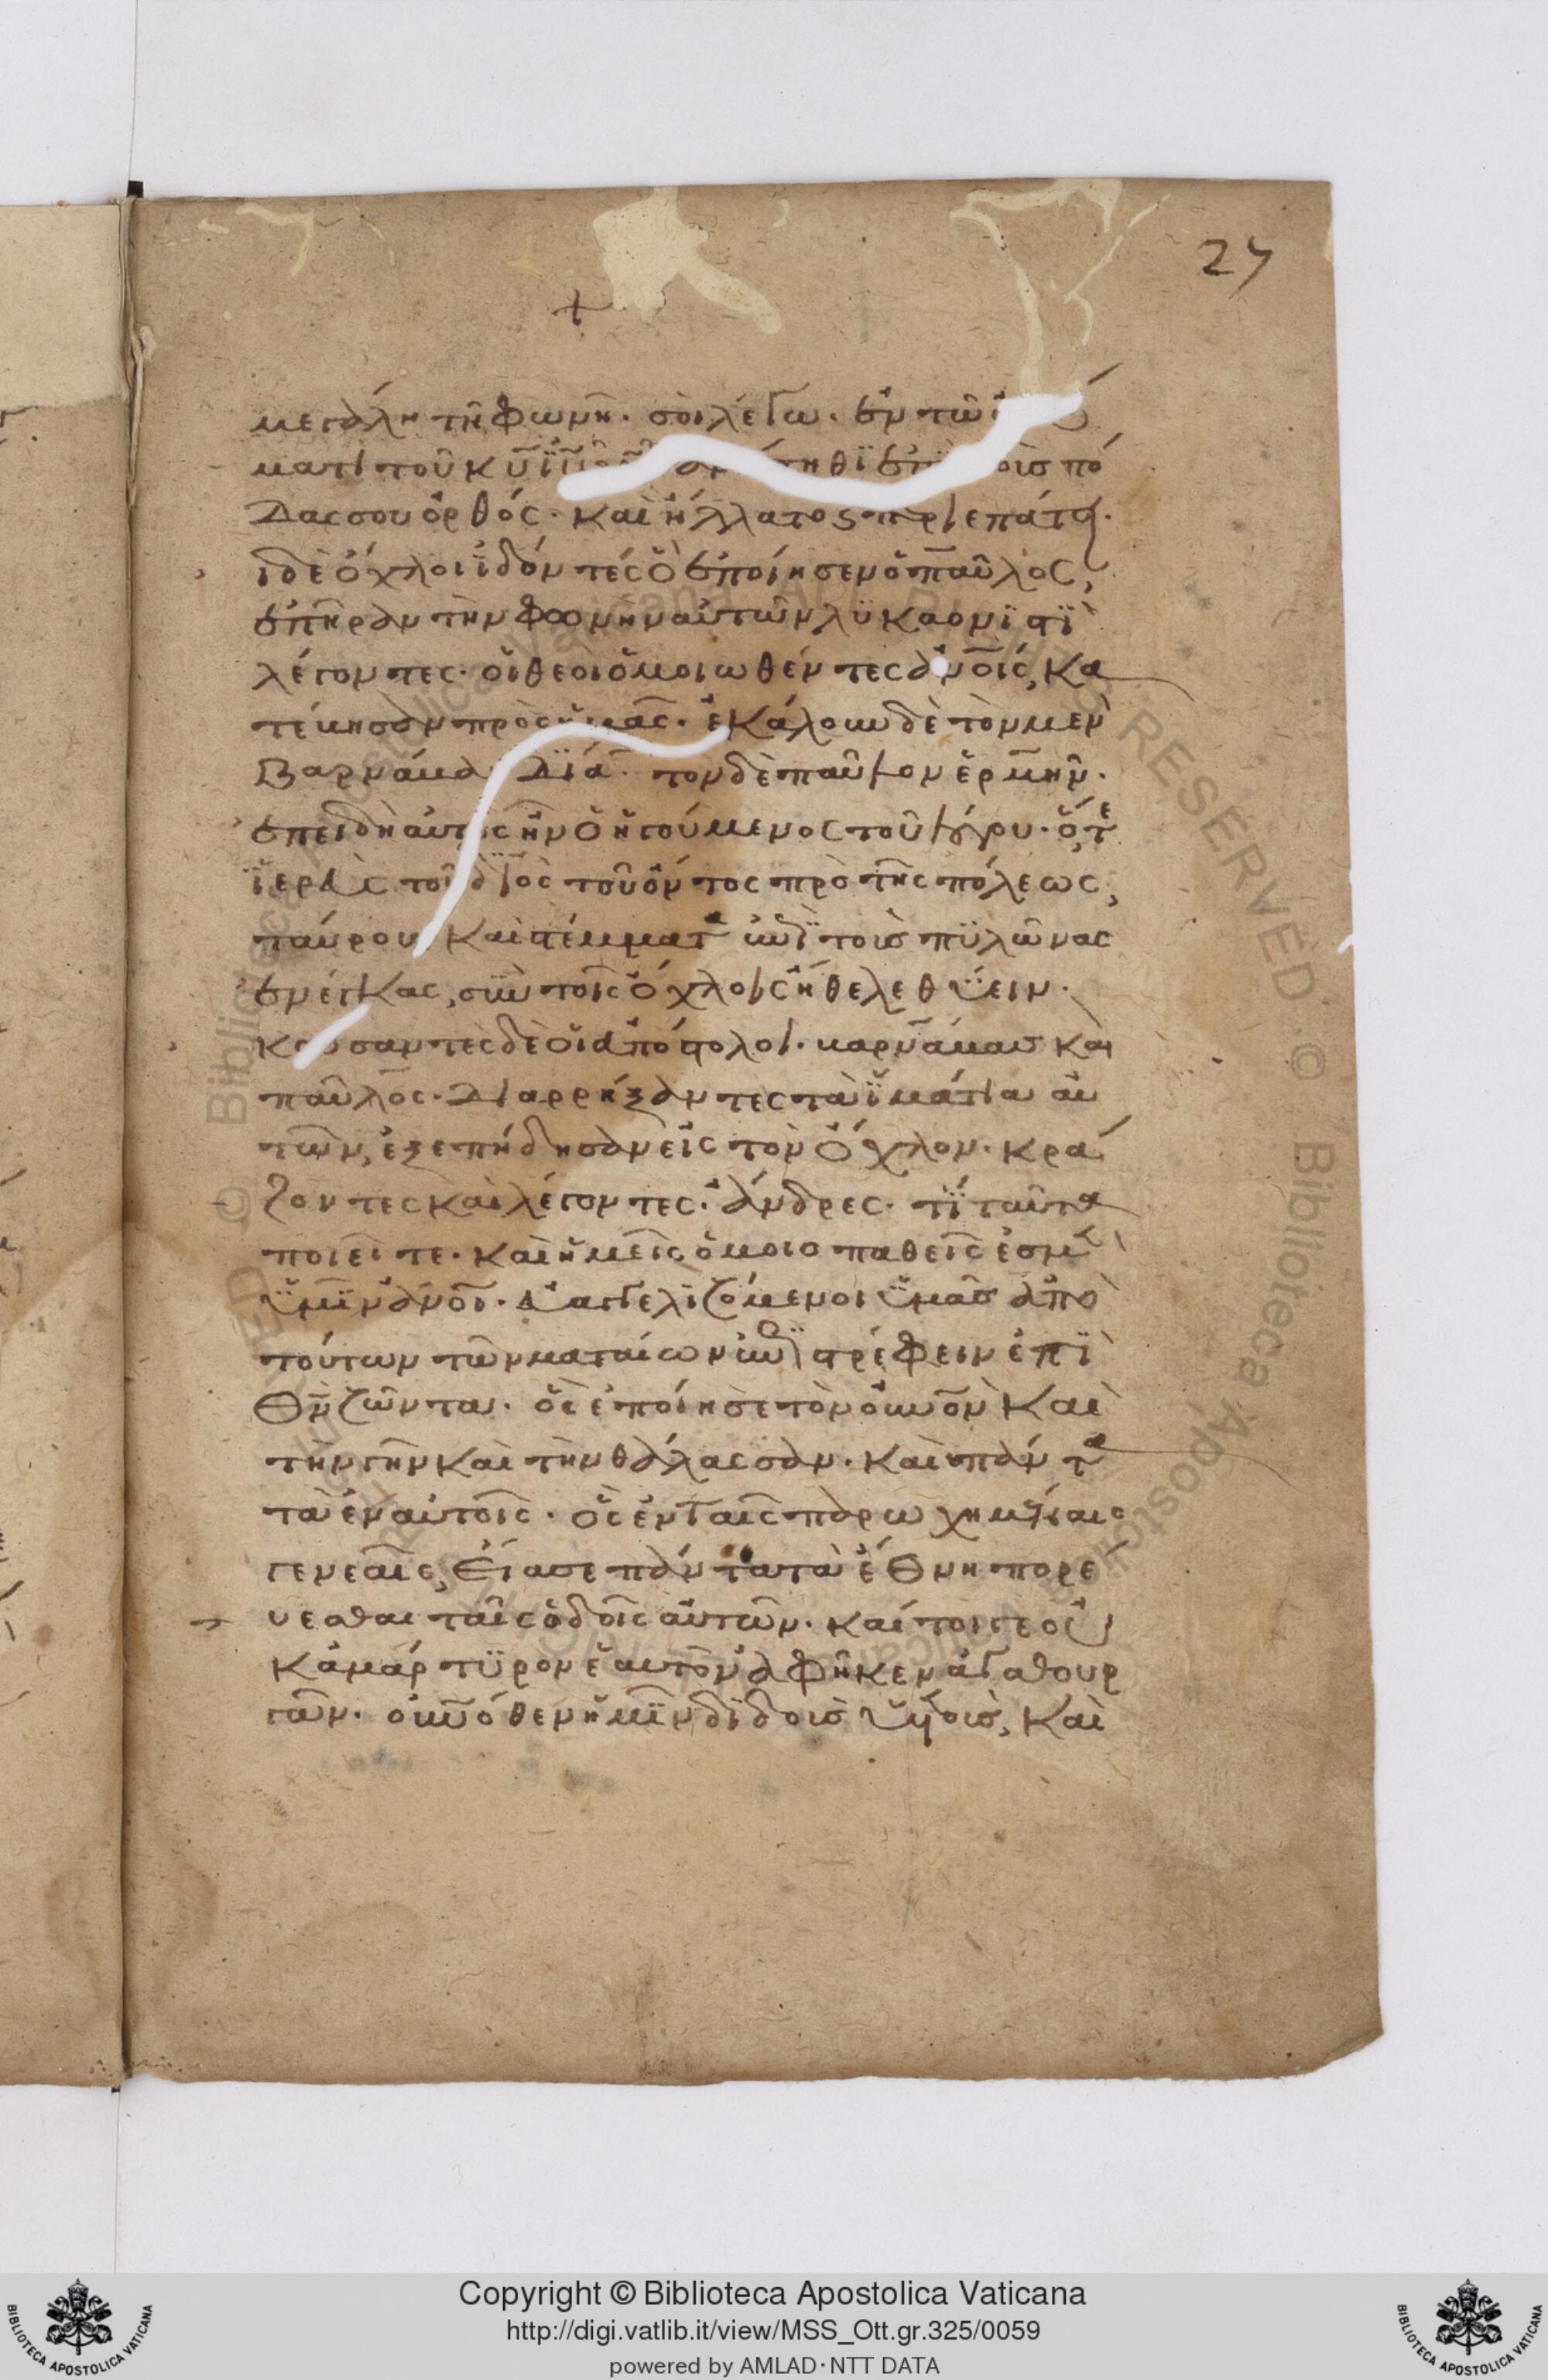 27
+
μεγάλη τῆ φωνῆ· σοὶ λέγω· ἐν τῶ
ματι τοῦ κυ ϊυ θϊ ἐπὶ οὺς πό
δας σου ὀρθός· καὶ ἥλλατο ς περιεπάτει·
ϊδὲ ὄχλοι ϊδόντες ὃ ἐποίησεν ὁ παῦλος,
ἐπῆραν τὴν φωνὴν αὐτῶν λϋκαονϊστϊ
λέγοντες· οἱ θεοὶ ὁμοιωθέντες ἀνοῖς, κα
τέβησαν πρὸς ἡμᾶς· ἐκάλουν δὲ τὸν μὲν
Βαρνάβαν Δϊά· τον δὲ παῦλον ἑρμῆν·
ἐπειδὴ αὐτὸς ἦν ὁ ἡγούμενος τοῦ λόγου· ὅ,τε
ϊερεὺς τοῦ δϊὸς τοῦ ὄντος πρὸ τῆς πόλεως,
ταύρους καὶ στέμματα ἐπὶ τοὺς πϋλῶνας
ἐνέγκας, σὺν τοῖς ὄχλοις ἤθελε θύειν·
κούσαντες δὲ οἱ ἀπόστολοι· βαρνάβας καὶ
παῦλος· Διαρρήξαντες τὰ ϊμάτια αὐ
τῶν, ἐξεπήδησαν εἰς τὸν ὄχλον· κρά
ζοντες καὶ λέγοντες· ἄνδρες· τΐ ταῦτα
ποιεῖτε· καὶ ἡμεῖς ὁμοιοπαθεῖς ἐσμὲν
ϋμῖν ἀνοι· εὐαγγελιζόμενοι ϋμᾶς ἀπὸ
τούτων τῶν ματαίων ἐπιστρέφειν ἐπῒ
θν ζῶντα· ὃς ἐποίησε τὸν οὐνον καὶ
τὴν γῆν καὶ τὴν θάλασσαν· καὶ πάντα
τὰ ἐν αὐτοῖς· ὃς ἐν ταῖς παρωχημέναις
γενεαῖς, εἴασε πάντα τὰ ἔθνη πορε
υεσθαι ταῖς ὁδοῖς αὐτῶν· καίτοιγε οὐ
κ ἀμάρτϋρον ἑαυτὸν ἀφῆκεν ἀγαθουρ
γῶν· οὐνόθεν ἡμῖν δϊδοὺς ϋετοὺς, καὶ
Copyright © Biblioteca Apostolica Vaticana
http://digi.vatlib.it/view/MSS_Ott.gr.325/0059
powered by AMLAD·NTT DATA